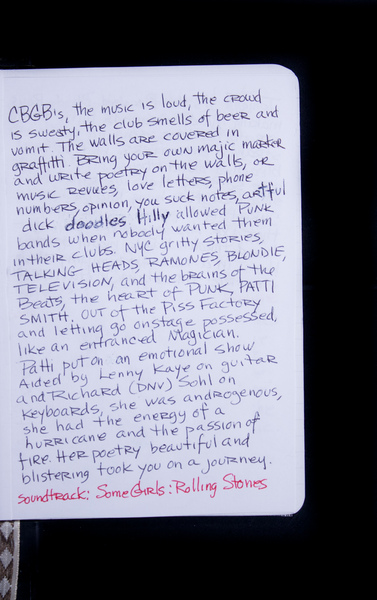 CBGBis, the music is loud, the crowd
is sweaty, the club smells of beer and
vomit. The walls are covered in
graffitti. Bring your own majic marker
and write poetry on the walls, or
music revues, love letters, phone
numbers, opinion, you suck notes, artful
dick doodles. Hilly allowed Punk
bands when nobody wanted them
in their clubs. NYC gritty stories,
TALKING HEADS, RAMONES, BLONDIE,
TELEVISION, and the brains of the
Beats, the heart of PUNK, PATTI
SMITH. Out of the Piss Factory
and letting go onstage possessed,
like an entranced Magician.
Patti put on an emotional show
Aided by Lenny Kaye on guitar
and Richard (DNV) Sohl on
Keyboards, she was androgenous,
she had the energy of a
hurricane and the passion of
fire. Her poetry beautiful and
blistering took you on a journey.
Soundtrack: Some Girls: Rolling Stones